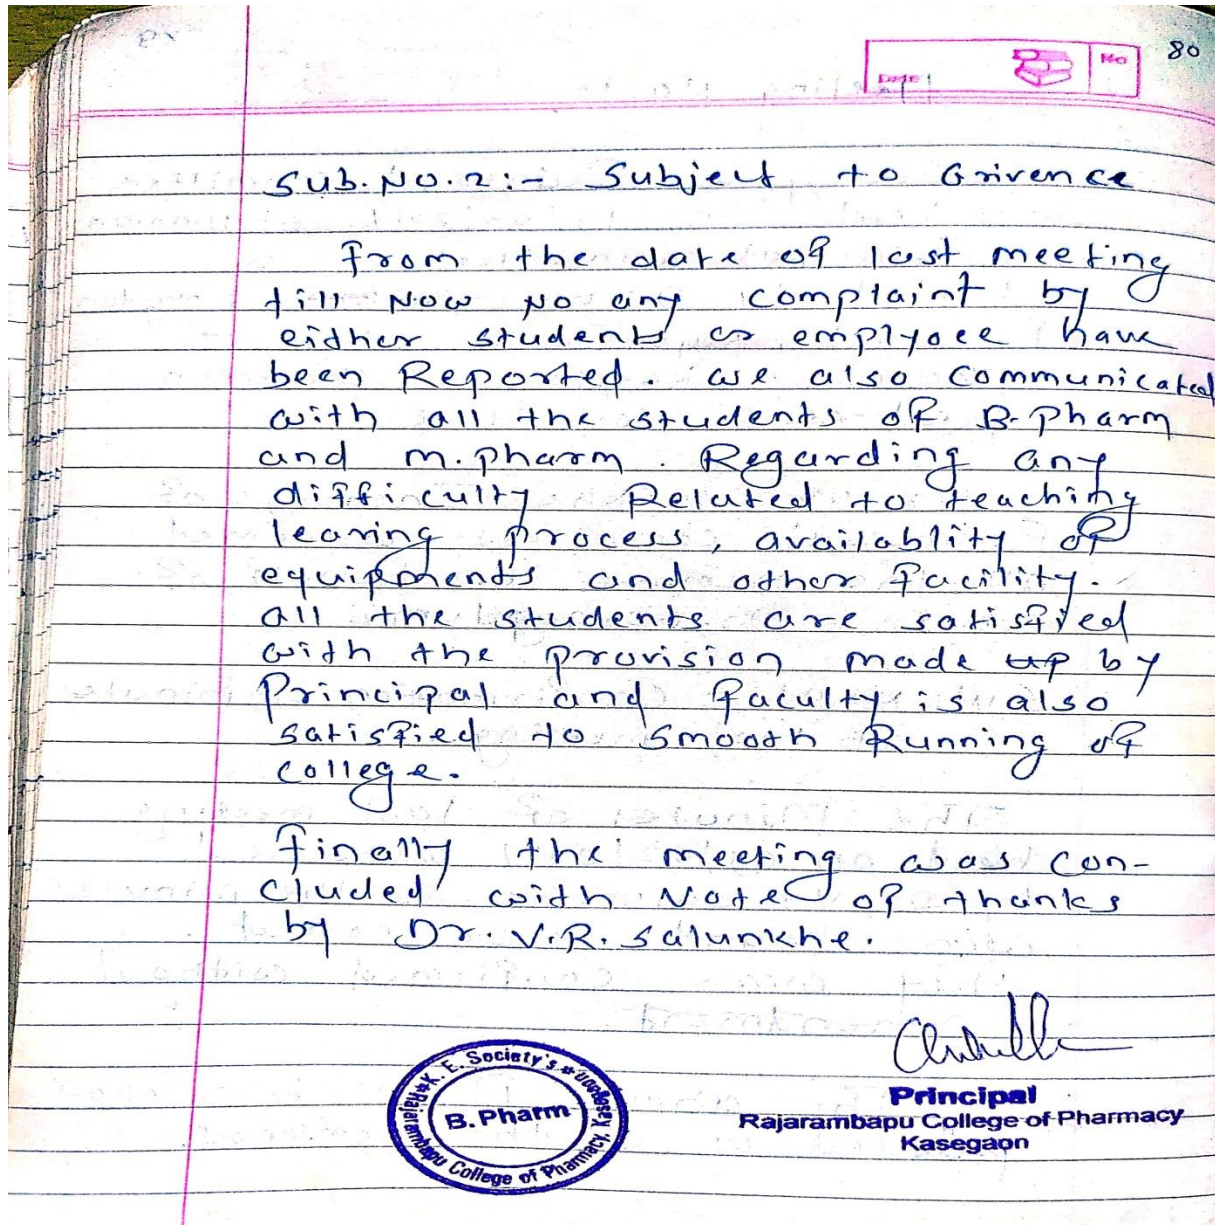 80
Date
No
Sub.No.2:- Subject to Grivence
From the date of last meeting
till Now No any complaint by
either students or emplyoee have
been Reported. we also communicated
with all the students of B.Pharm
and m.pharm. Regarding any
difficulty Related to teaching
learing process, availablity of
equipments and other facility.
all the students are satisfied
with the provision made up by
Principal and faculty is also
satisfied to smooth Running of
college.
Finally the meeting was con-
cluded with Note of thanks
by Dr. V.R. Salunkhe.
K. E. Society's
Rajarambapu College of Pharmacy, Kasegaon
B. Pharm
Principal
Rajarambapu College of Pharmacy
Kasegaon